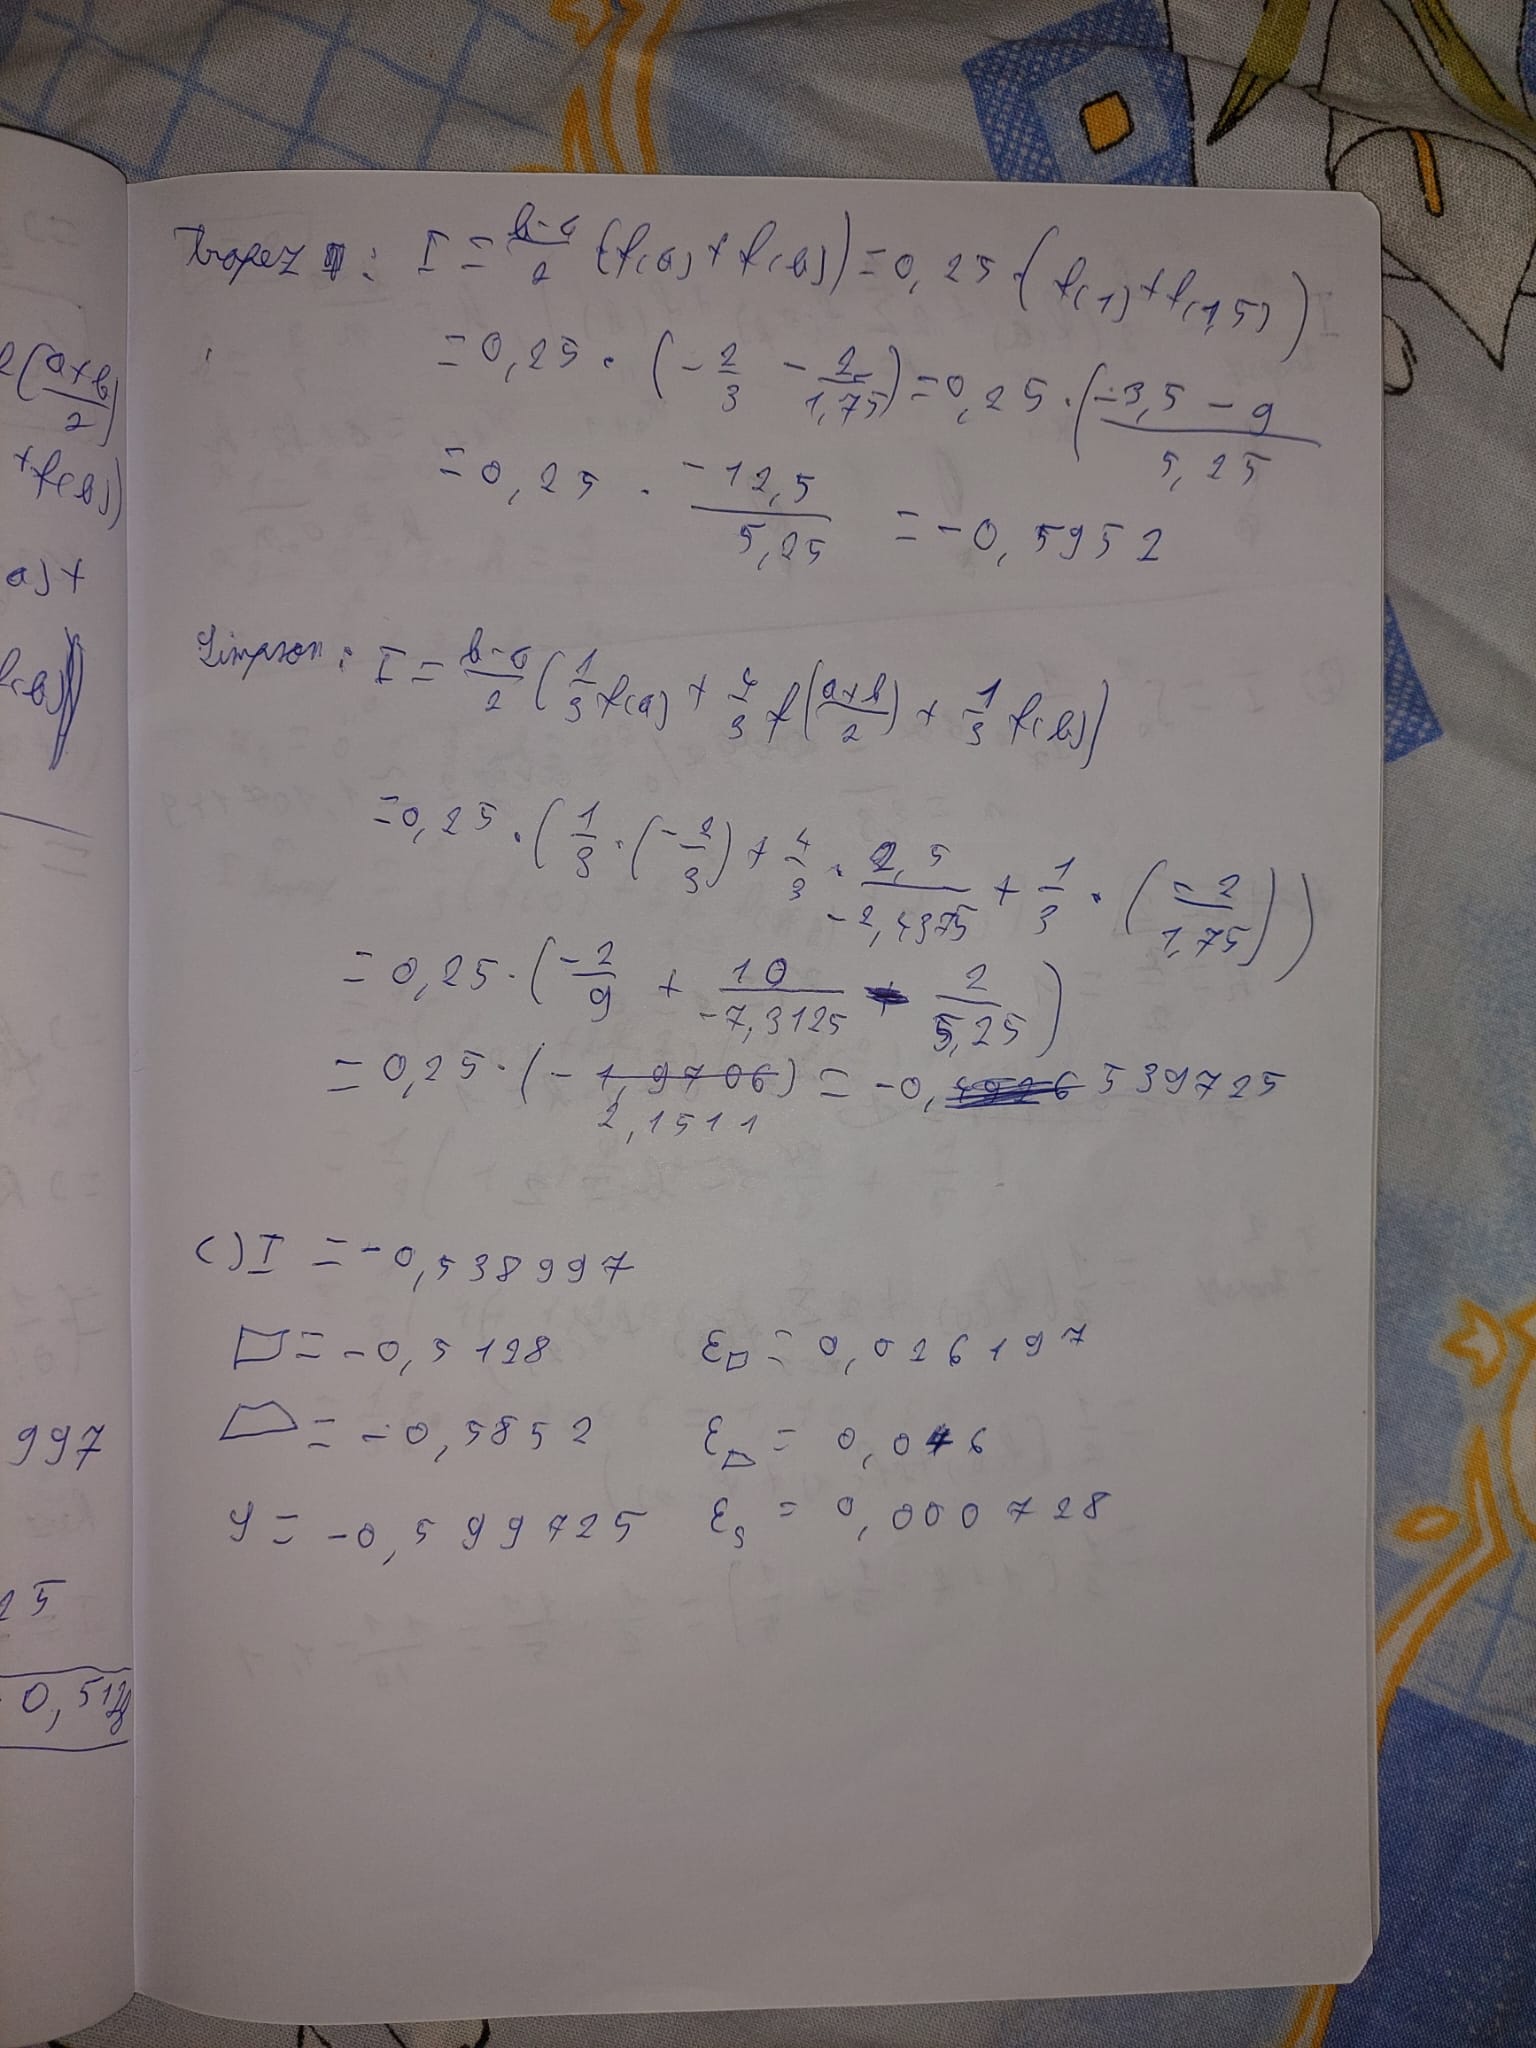 2(a+b/2)
+f(b))
a)+
f(b))
997
25
0,5128
Trapez : I = (b-a)/2 (f(a) + f(b)) = 0,25 (f(1) + f(1,5))
= 0,25 · (-2/3 - 2/1,75) = 0,25 · (-3,5 - 9)/5,25
= 0,25 · -12,5/5,25 = -0,5952
Simpson : I = (b-a)/2 (1/3 f(a) + 4/3 f((a+b)/2) + 1/3 f(b))
= 0,25 · (1/3 · (-2/3) + 4/3 · 2,5/-2,4375 + 1/3 · (-2/1,75))
= 0,25 · (-2/9 + 10/-7,3125 - 2/5,25)
= 0,25 · (-1,9706) = -0,539725
2,1511
C) I = -0,538997
▱ = -0,5128 ε▱ = 0,026197
⏢ = -0,5852 ε⏢ = 0,046
S = -0,599725 εs = 0,000728